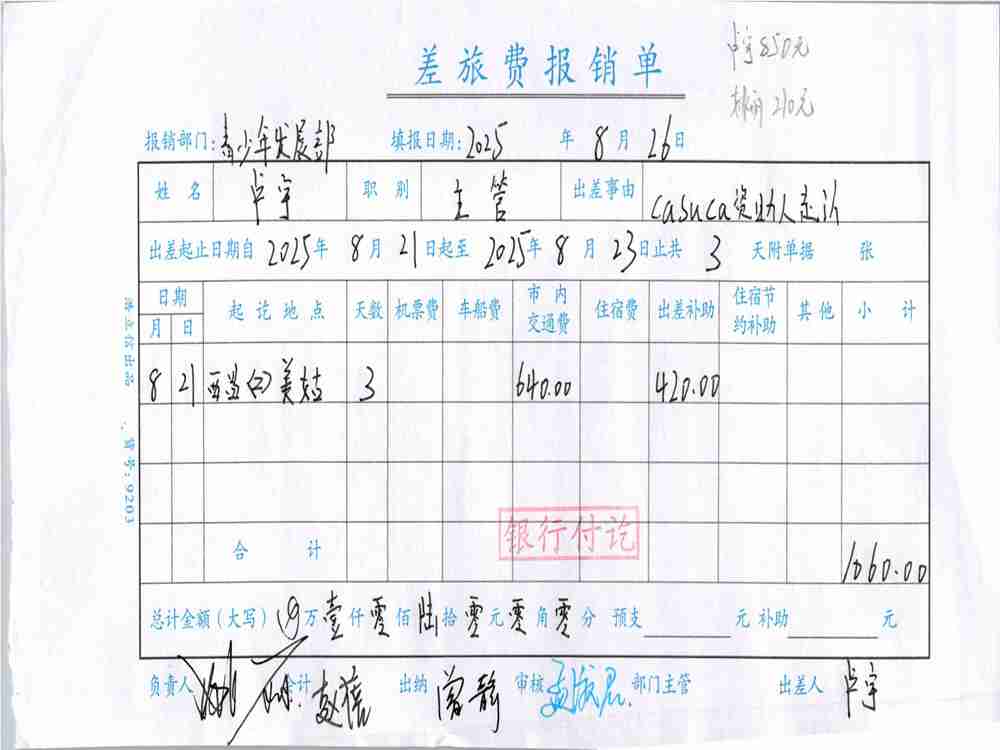 卢宇 850元
210元
差旅费报销单
报销部门:青少年发展部 填报日期:2025 年 8 月 26 日
姓 名 卢宇 职 别 主管 出差事由 casuca资助人走访
出差起止日期自 2025 年 8 月 21 日起至 2025 年 8 月 23 日止共 3 天附单据 张
日期 起 讫 地 点 天数 机票费 车船费 市 内 交通费 住宿费 出差补助 住宿节 约补助 其 他 小 计
月 日
8 21 美姑 3 640.00 420.00
银行付讫
合 计 1060.00
总计金额(大写) 万 壹 仟 零 佰 陆 拾 零 元 零 角 零 分 预支 元 补助 元
负责人 会计 出纳 曾静 审核 部门主管 出差人 卢宇
货号:9203